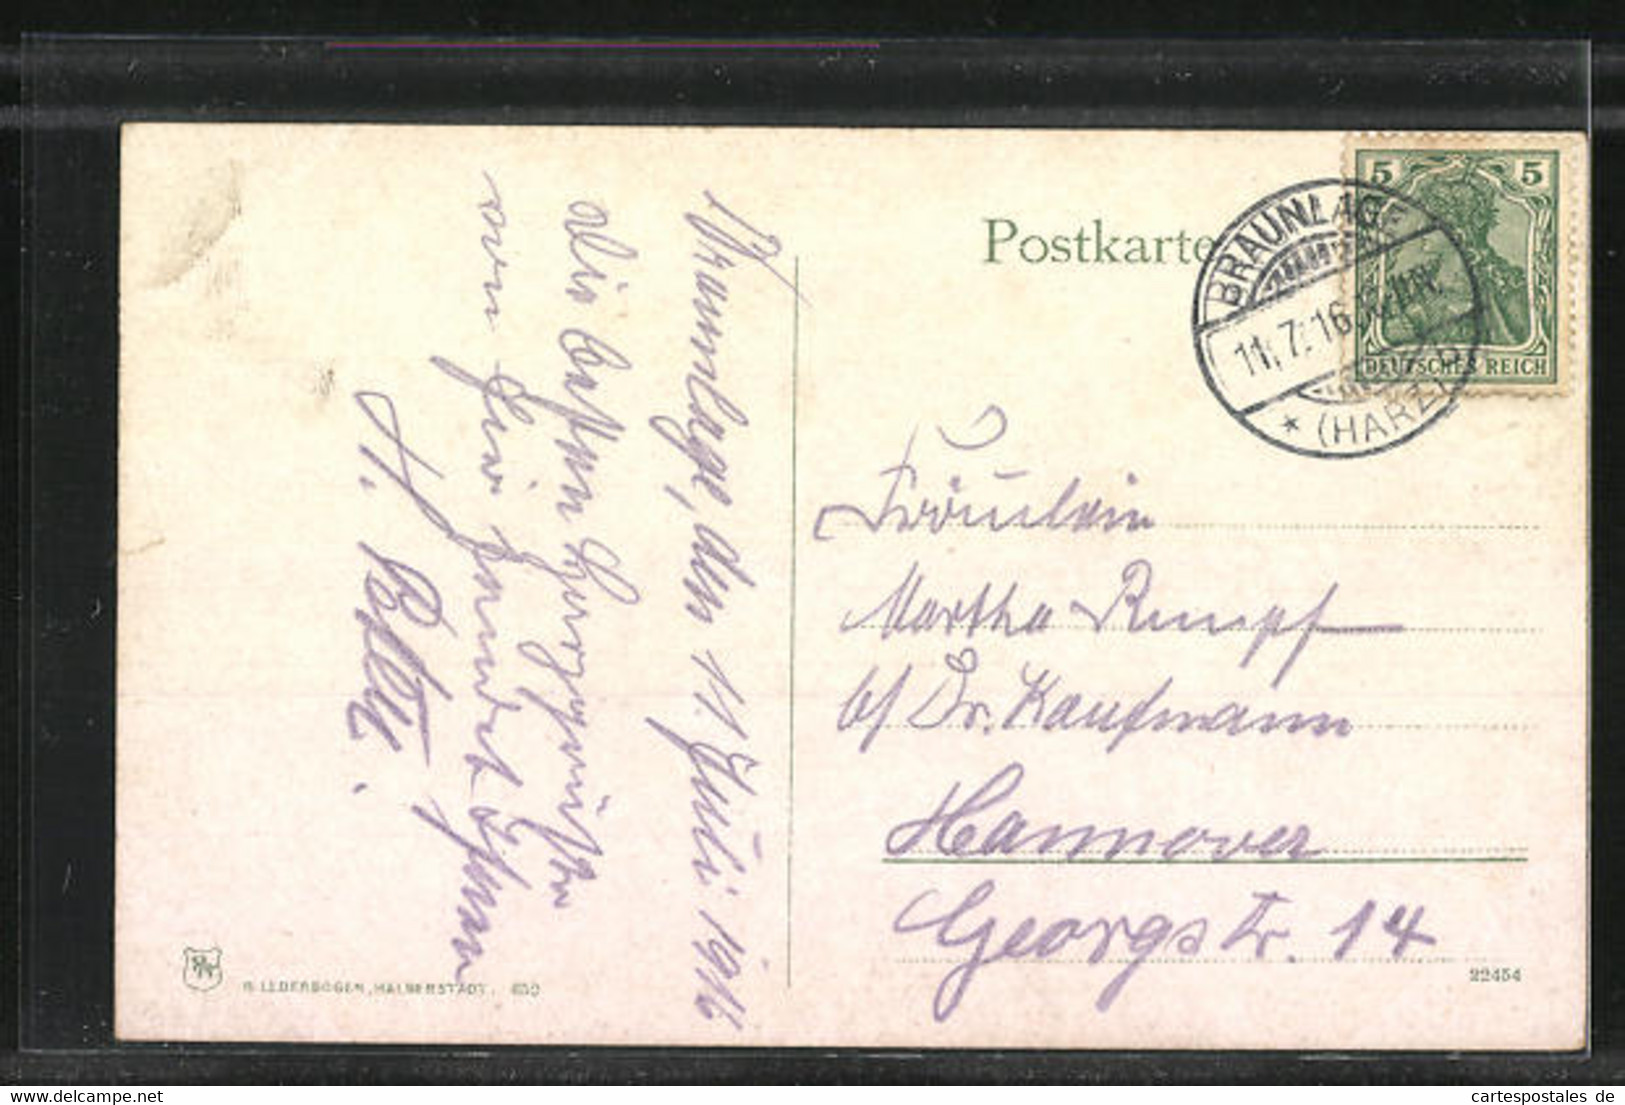 Braunlage, den 11. Juli 1916
Die besten Herzgrüße
von hier sendet Ihnen
H.
Postkarte
BRAUNLAGE
11.7.16
(HARZ)
5 5
DEUTSCHES REICH
Fräulein
Martha Rempf
b/ Dr. Kaufmann
Hannover
Georgstr. 14
LEDERBOGEN, HALBERSTADT.
22454
cartespostales de